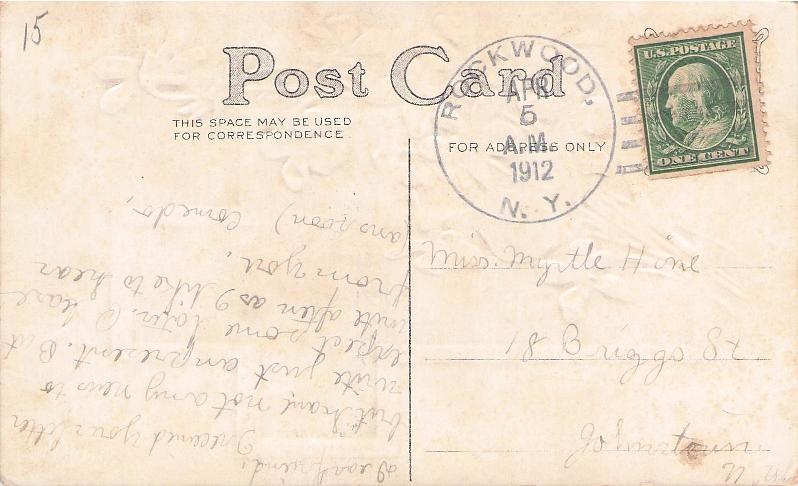 15
Post Card
THIS SPACE MAY BE USED
FOR CORRESPONDENCE
FOR ADDRESS ONLY
ROCKWOOD,
APR
5
A.M.
1912
N. Y.
U.S. POSTAGE
ONE CENT
Miss. Myrtle Hine
18 Briggs St.
Johnstown
N. Y.
Dear friend;
I received your letter
but have not any news to
write just at present. But
expect some later.
write often as I like to hear
from you,
(ans soon)